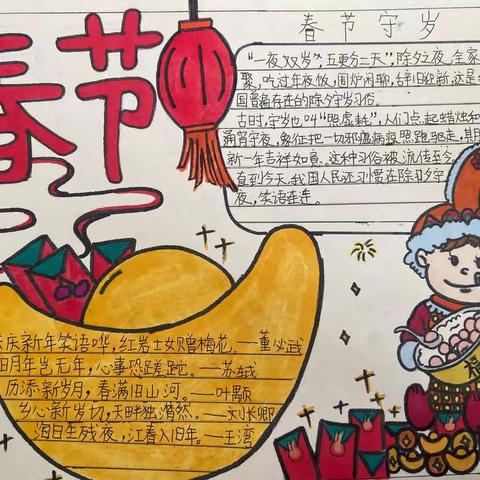 春节
春节守岁
"一夜双岁","五更分二天",除夕之夜,全家
聚,吃过年夜饭,围炉闲聊,辞旧迎新,这是
国普遍存在的除夕守岁习俗。
古时,守岁也叫"照虚耗",人们点起蜡烛和
通宵守夜,象征把一切邪瘟病疫照跑驱走,其
新一年吉祥如意。这种习俗被流传至今
直到今天,我国人民还习惯在除夕守
夜,笑语连连。
庆新年笑语哗,红岩士女赠梅花。——董必武
明年岂无年,心事恐蹉跎。——苏轼
历添新岁月,春满旧山河。——叶颙
乡心新岁切,天畔独潸然。——刘长卿
海日生残夜,江春入旧年。——王湾